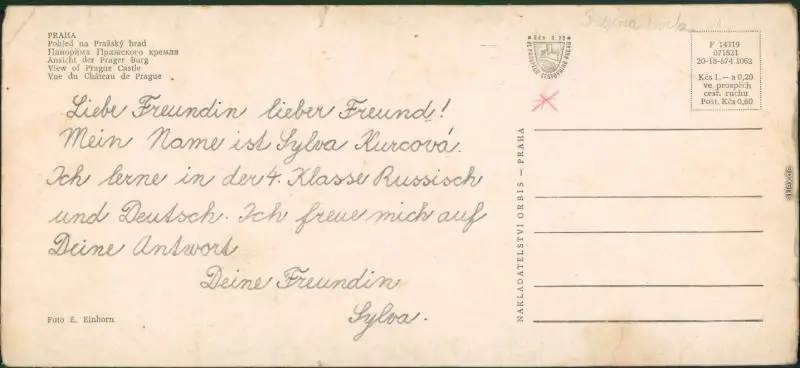 PRAHA
Pohled na Pražský hrad
Панорима Пражского кремля
Ansicht der Prager Burg
View of Prague Castle
Vue du Château de Prague
Liebe Freundin lieber Freund!
Mein Name ist Sylva Kurcová.
Ich lerne in der 4. Klasse Russisch
und Deutsch. Ich freue mich auf
Deine Antwort
Deine Freundin
Sylva.
Foto E. Einhorn
NAKLADATELSTVÍ ORBIS — PRAHA
F 14319
071821
20-18-874 1062
Kčs 1.— a 0,20
ve prospěch
cest. ruchu
Pošt. Kčs 0,60